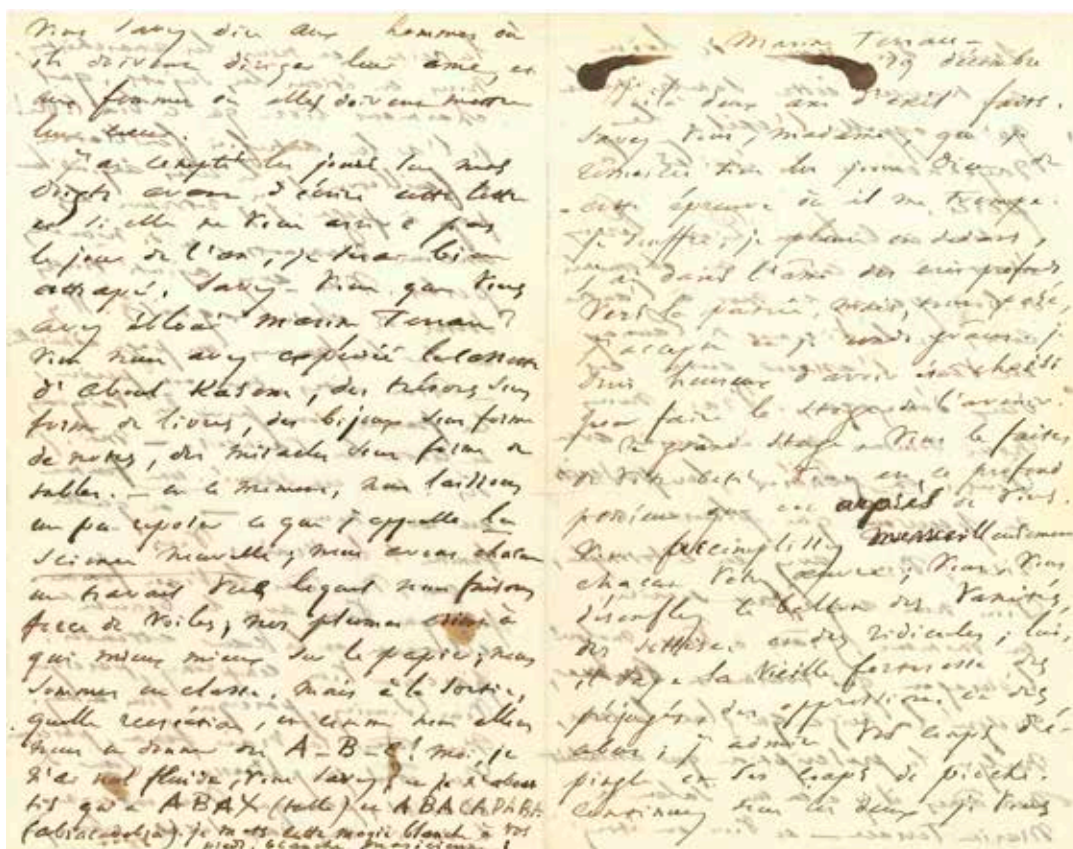 vous savez dire aux hommes où
ils doivent diriger leur âme, et
aux femmes où elles doivent mettre
leur cœur.
J'ai compté les jours sur mes
doigts avant d'écrire cette lettre
et si elle ne vous arrive pas
le jour de l'an, je serai bien
attrapé. Savez-vous que vous
avez ébloui Marine Terrace?
Vous nous avez expédié la cassette
d'Aboul Kasem, des trésors sous
forme de livres, des bijoux sous forme
de notes, des miracles sous forme de
tables. — en ce moment, nous laissons
un peu reposer ce que j'appelle la
science nouvelle; nous avons chacun
un travail vers lequel nous faisons
force de voiles, nos plumes à
qui mieux mieux sur le papier; nous
sommes en classe. mais à la sortie,
quelle récréation, et comme nous allons
nous en donner des A-B-C! moi, je
n'ai nul fluide, vous savez, et je n'aboutis
qu'à ABAX (table) et ABACADABRA
(abracadabra). je mets cette magie blanche à vos
pieds, blanche magicienne!
Marine Terrace —
29 décembre
Voilà deux ans d'exil faits.
Savez-vous, madame, que je
remercie tous les jours Dieu de
cette épreuve où il me trempe.
Je souffre, je pleure en dedans,
j'ai dans l'âme des cris profonds
vers la patrie, mais, tout pesé,
j'accepte et je rends grâces. je
suis heureux d'avoir été choisi
pour faire le stage de l'avenir.
Ce grand stage, vous le faites
de votre côté, vous et ce profond
penseur qui est auprès de vous.
Vous accomplissez merveilleusement
chacun votre œuvre; vous, vous
désenflez le ballon des vanités,
des sottises et des ridicules; lui,
il sape la vieille forteresse des
préjugés, des oppressions et des
abus; j'admire vos coups d'é-
pingle et ses coups de pioche.
Continuez tous les deux. je vous